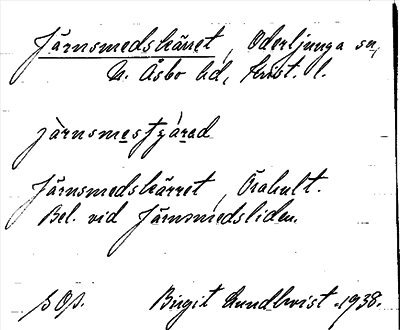 Järnsmedskärret, Oderljunga sn,
N. Åsbo hd, Krist. l.
järnsmestjärad
Järnsmedskärret, Örahult.
Bel. vid Järnsmedsliden.
s Os. Birgit Lundkvist. 1938.